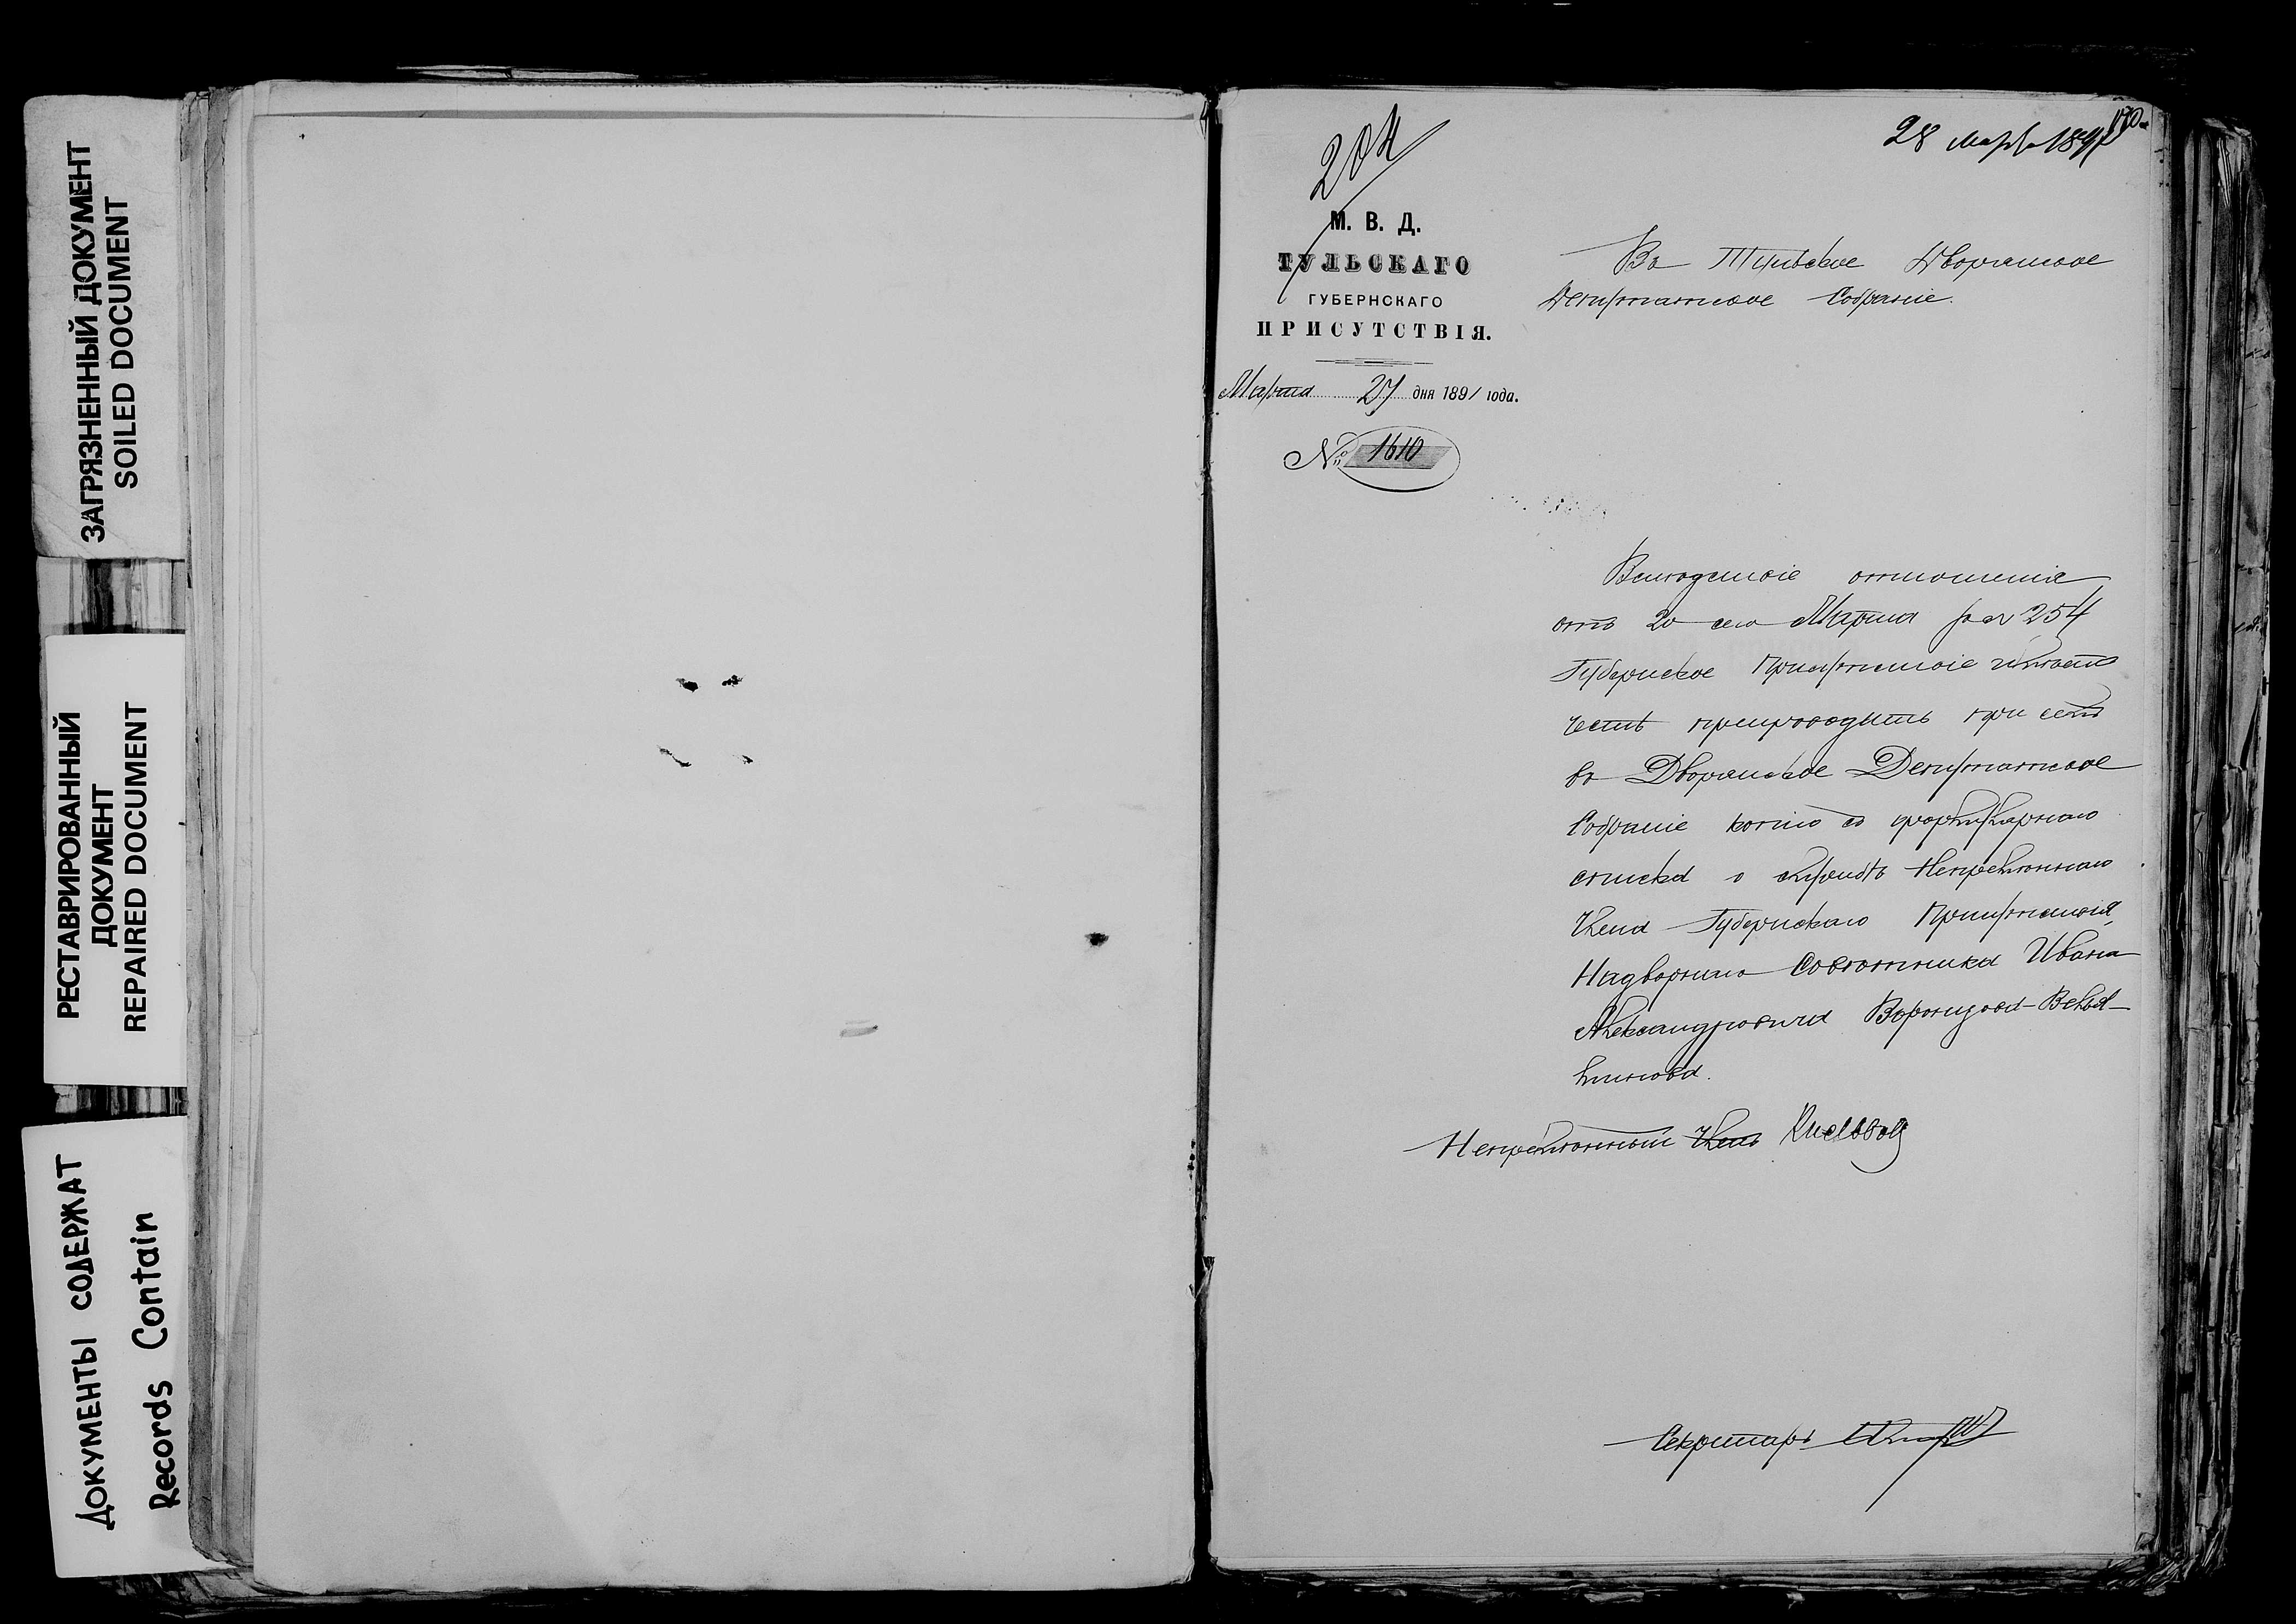 ЗАГРЯЗНЕННЫЙ ДОКУМЕНТ
SOILED DOCUMENT
РЕСТАВРИРОВАННЫЙ
ДОКУМЕНТ
REPAIRED DOCUMENT
ДОКУМЕНТЫ СОДЕРЖАТ
Records Contain
204
28 Марта 1891
М. В. Д.
ТУЛЬСКАГО
ГУБЕРНСКАГО
ПРИСУТСТВІЯ.
Марта 27 дня 1891 года.
№ 1610
Въ Тульское Дворянское
Депутатское Собраніе.
Вслѣдствіе отношенія
отъ 20 сего Марта за № 254
Губернское Присутствіе имѣетъ
честь препроводить при семъ
въ Дворянское Депутатское
Собраніе копію съ формулярнаго
списка о службѣ Непремѣннаго
Члена Губернскаго Присутствія,
Надворнаго Совѣтника Ивана
Александровича Воронцова-Велья-
минова.
Непремѣнный Членъ
Секретарь